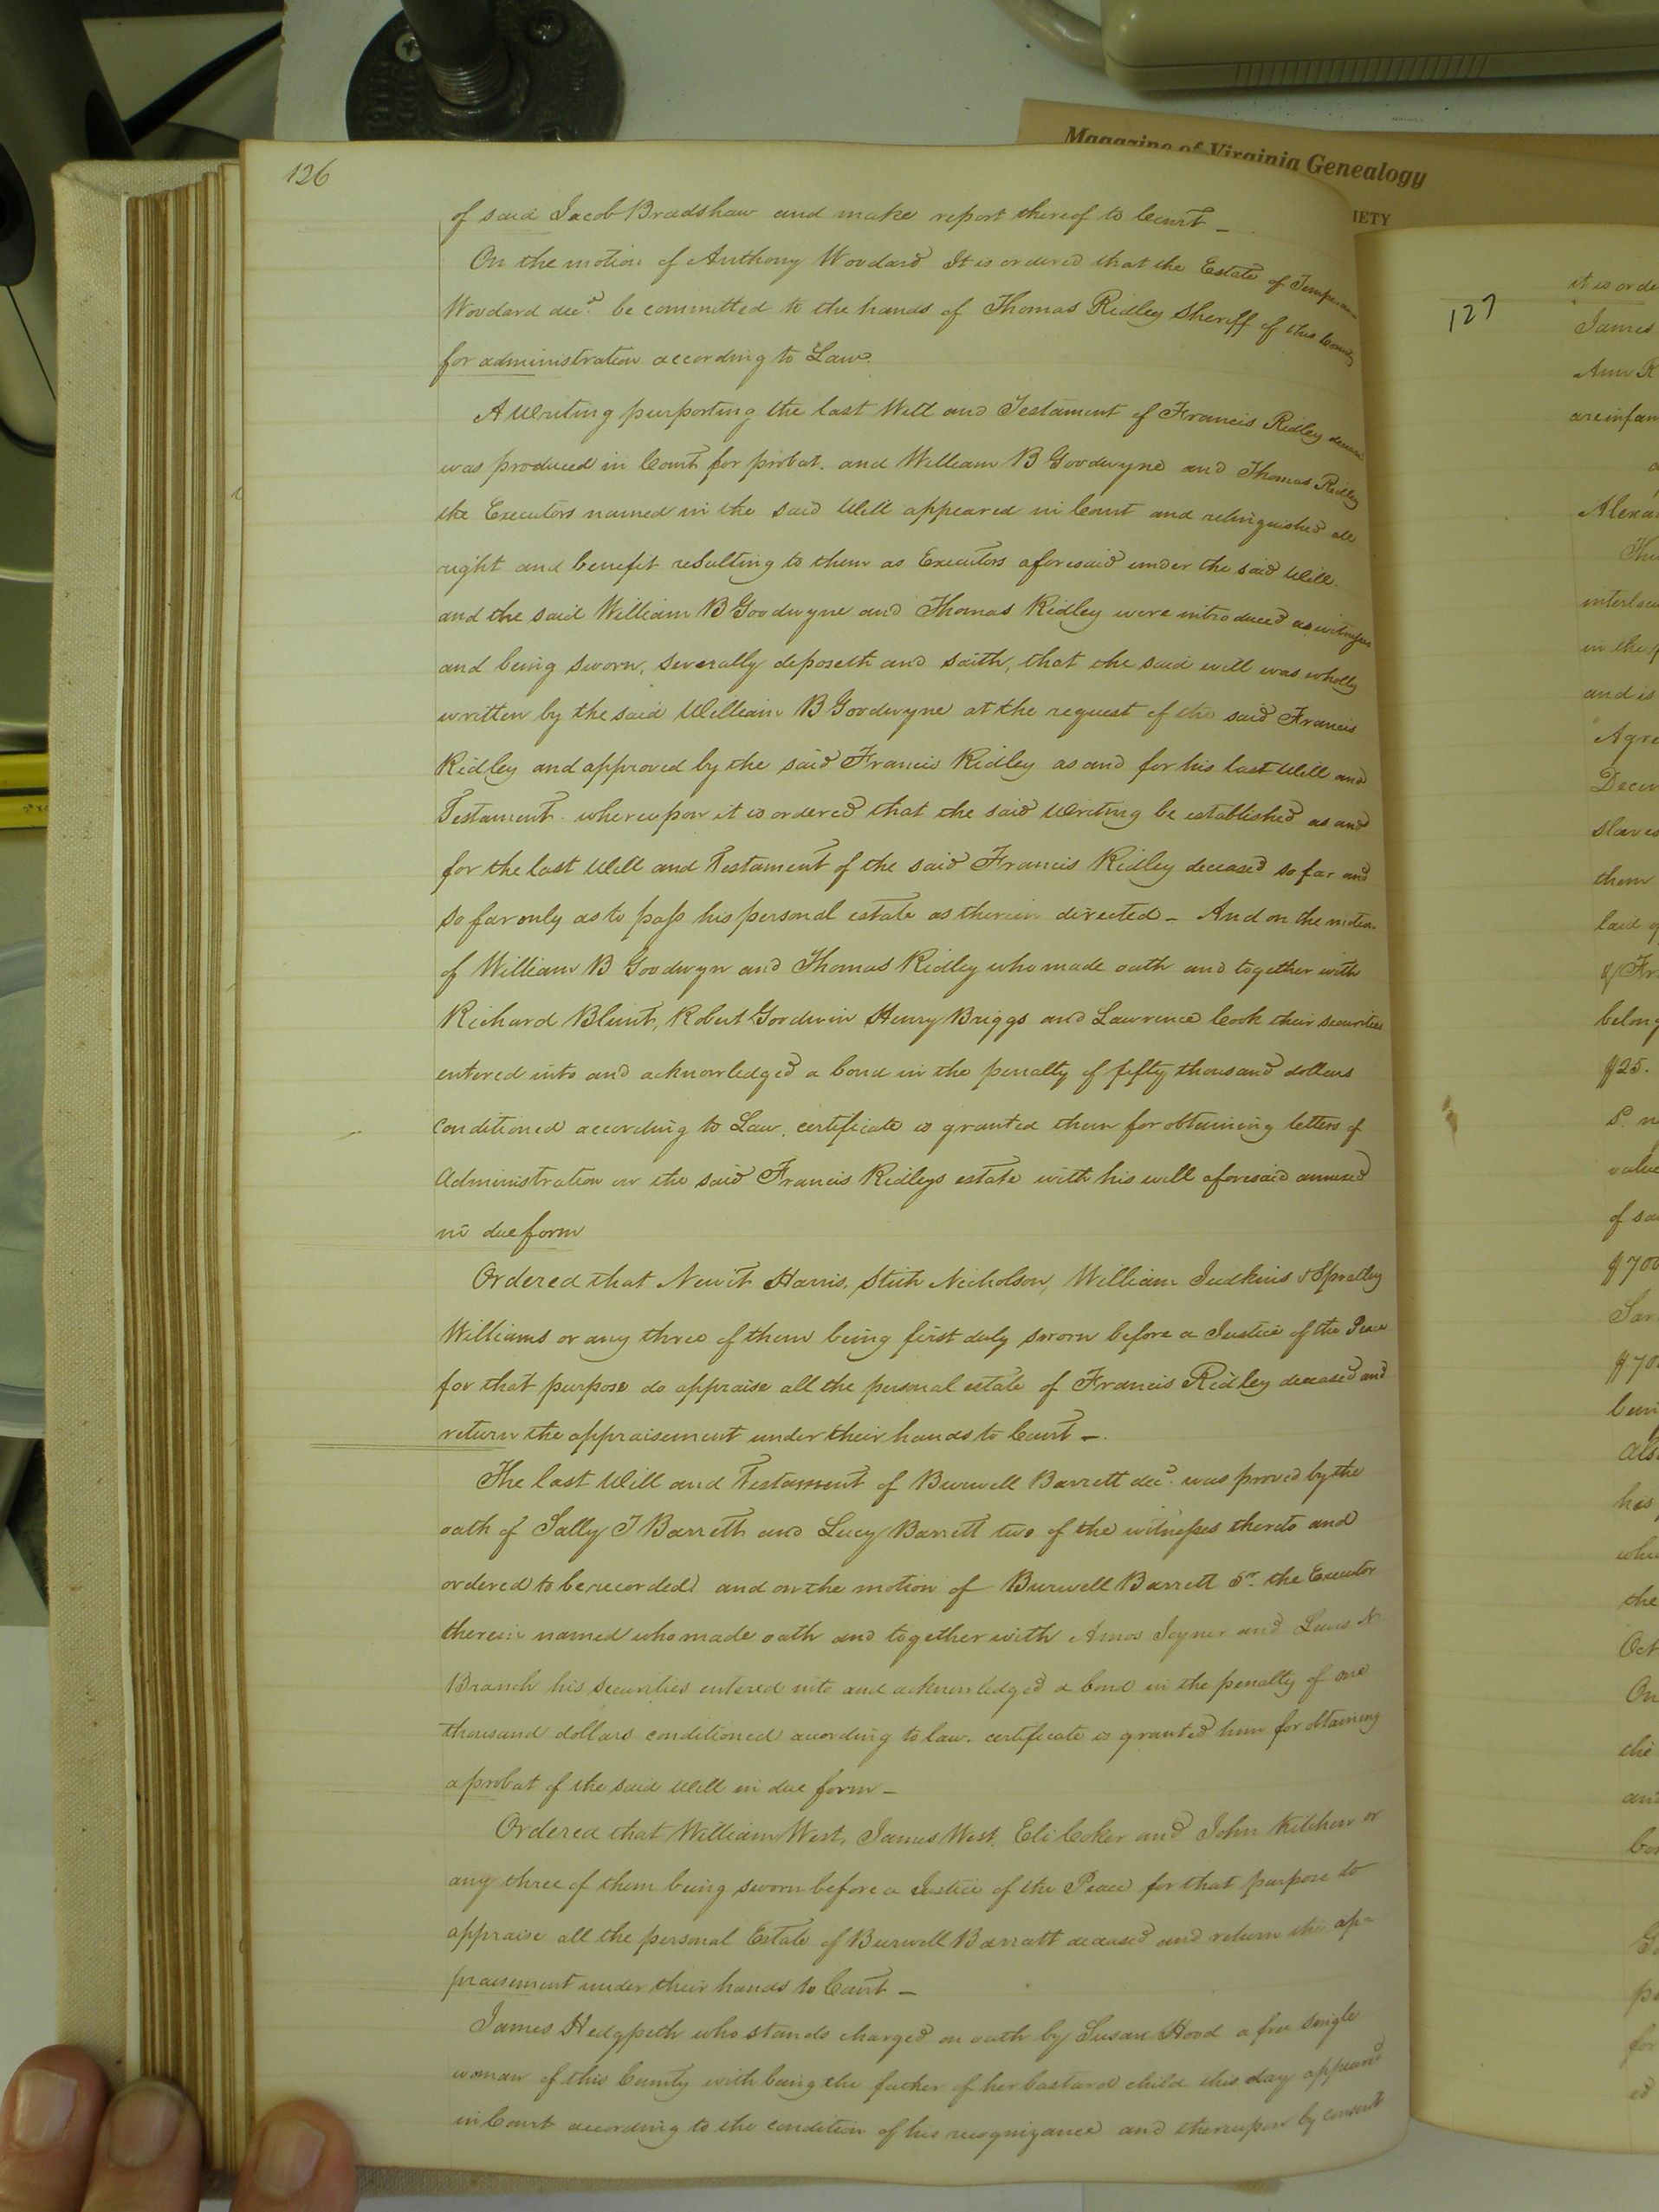 Magazine of Virginia Genealogy
IETY
126
of said Jacob Bradshaw and make report thereof to Court _
On the motion of Anthony Woodard It is ordered that the Estate of
Woodard decd. be committed to the hands of Thomas Ridley Sheriff of this County
for administration according to Law.
A Writing purporting the last Will and Testament of Francis Ridley
was produced in Court for probat. and William B Goodwyne and Thomas Ridley
the Executors named in the said Will appeared in Court and relinquished all
right and benefit resulting to them as Executors aforesaid under the said Will.
and the said William B Goodwyne and Thomas Ridley were introduced as witnesses
and being sworn, severally deposeth and saith, that the said will was wholly
written by the said William B Goodwyne at the request of the said Francis
Ridley and approved by the said Francis Ridley as and for his last Will and
Testament. whereupon it is ordered that the said Writing be established as and
for the last Will and Testament of the said Francis Ridley deceased so far and
so far only as to pass his personal estate as therein directed _ And on the motion
of William B Goodwyn and Thomas Ridley who made oath and together with
Richard Blunt, Robert Goodwin Henry Briggs and Lawrence Cook their securities
entered into and acknowledged a bond in the penalty of fifty thousand dollars
conditioned according to Law, certificate is granted them for obtaining letters of
Administration on the said Francis Ridleys estate with his will aforesaid annexed
in due form
Ordered that Newit Harris, Stith Nicholson, William Judkins & Spratley
Williams or any three of them being first duly sworn before a Justice of the Peace
for that purpose do appraise all the personal estate of Francis Ridley deceased and
return the appraisement under their hands to Court _
The last Will and Testament of Burwell Barrett decd. was proved by the
oath of Sally T Barrett and Lucy Barrett two of the witnesses thereto and
ordered to be recorded and on the motion of Burwell Barrett Sr. the Executor
therein named who made oath and together with Amos Joyner and Lewis N
Branch his securities entered into and acknowledged a bond in the penalty of one
thousand dollars conditioned according to law. certificate is granted him for obtaining
a probat of the said Will in due form _
Ordered that William West, James West, Eli Coker and John Kitchen or
any three of them being sworn before a Justice of the Peace for that purpose to
appraise all the personal Estate of Burwell Barratt deceased and return the ap=
praisement under their hands to Court _
James Hedgpeth who stands charged on oath by Susan Hood a free single
woman of this County with being the father of her bastard child this day appeared
in Court according to the condition of his recognizance and thereupon by consent
127
it is orde
James
Ann R
are infan
Alexa
interloc
in the
and is
Agre
Decem
slaves
them
laid
belong
$25.
value
of sa
$700
his
the
Oct
On
the
for